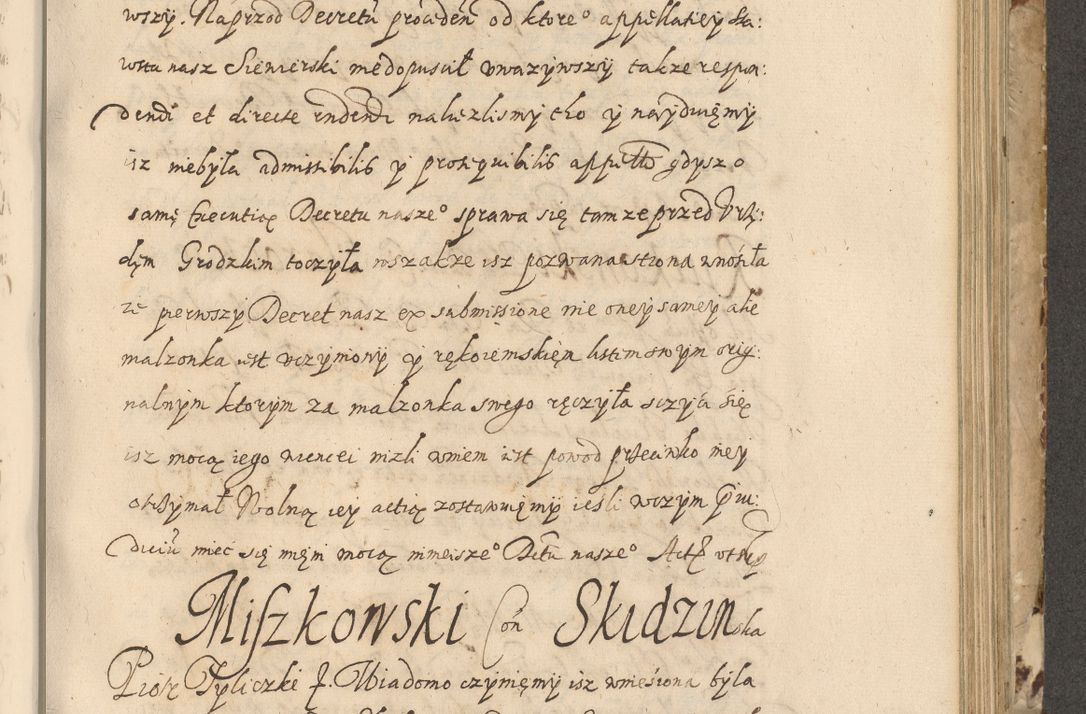 wszy. Naprzod Decretu prouden od ktore° appellatiey sta:
wsta nasz Siemierski niedopuscił vwazywszy takze respon:
dendi et directe endendi nalezlismy tho y naydujęmy
isz niebyła admissibilis y prosequibilis appeltto gdysz o
samę Executię Decretu nasze° sprawa się tamze przed Vrzę:
dęm Grodzkim toczyła wszakze isz pozwana strona wnosiła
ze pierwszy Decret nasz ex submissione nie oney samey ale
malzonka iest vczyniony y rękoiemskięm listem swym orig:
nalnym ktorym za malzonka swego ręczyła sczyci się
isz mocą iego wiencei nizli wniem iest powod przeciwko niey
otrzymał Wolną iey actią zostawuięmy iesli wczym Piu:
diciu mieć się mięni mocą ninieisze° Dctu nasze° Act
Miszkowski Con Skidzinska
Piotr Tyliczki f. Wiadomo czyniemy isz wniesiona była